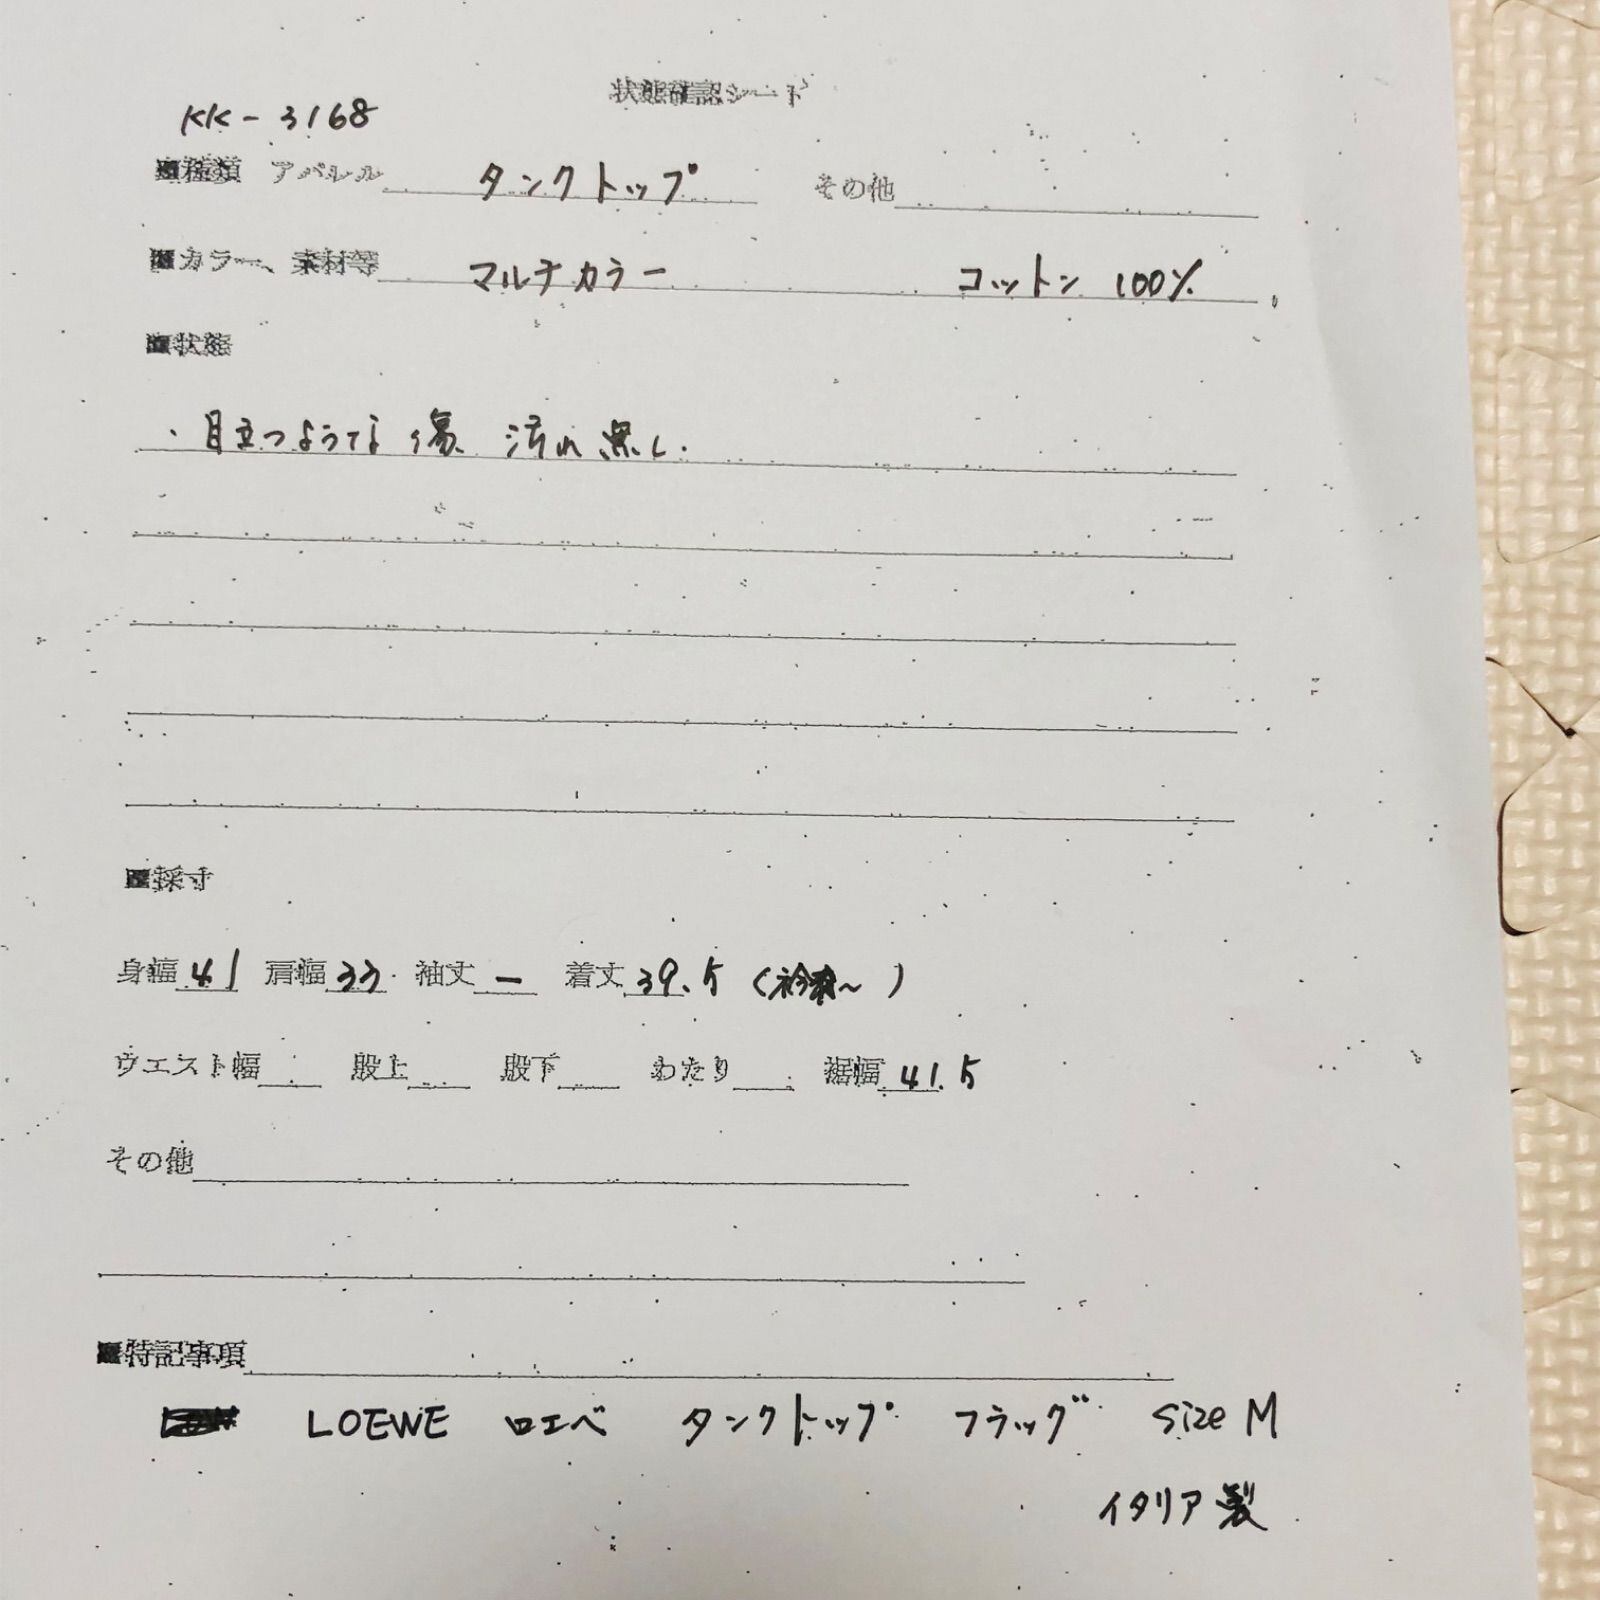 状態確認シート
KK-3168
■種類 アパレル タンクトップ その他
■カラー、素材等 マルチカラー コットン 100%
■状態
・目立つような傷 汚れ無し.
■採寸
身幅 41 肩幅 33 袖丈 ー 着丈 39.5 (衿〜)
ウエスト幅 股上 股下 わたり 裾幅 41.5
その他
■特記事項
LOEWE ロエベ タンクトップ フラッグ size M
イタリア製